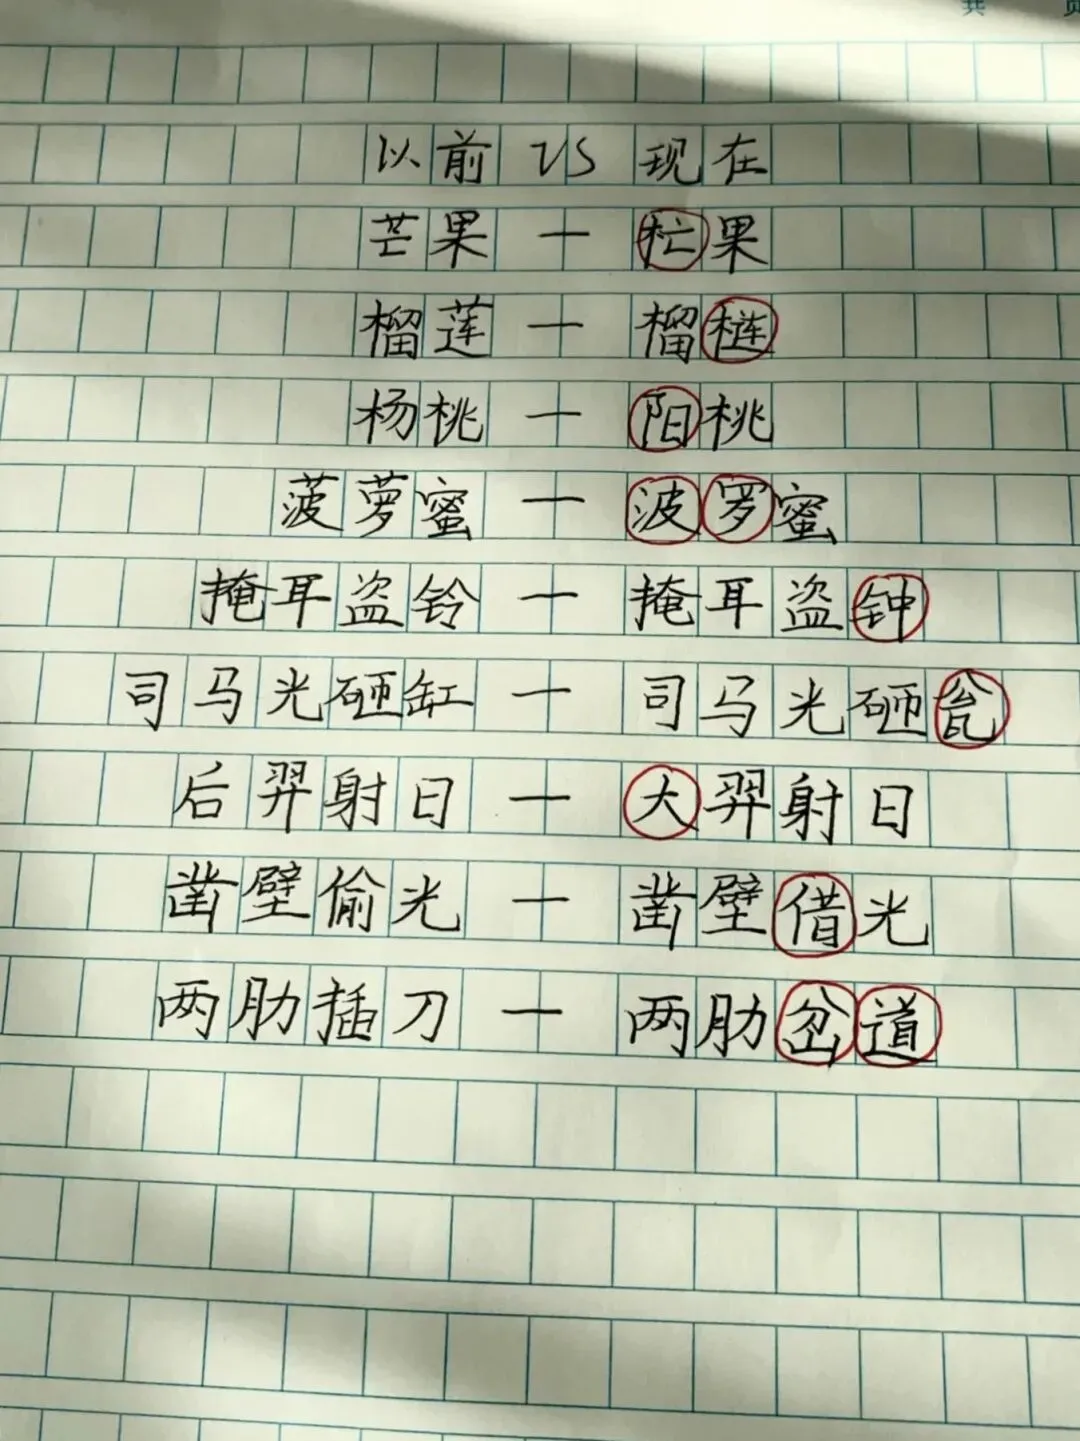 共 页
以前 VS 现在
芒果 — 杧果
榴莲 — 榴梿
杨桃 — 阳桃
菠萝蜜 — 波罗蜜
掩耳盗铃 — 掩耳盗钟
司马光砸缸 — 司马光砸瓮
后羿射日 — 大羿射日
凿壁偷光 — 凿壁借光
两肋插刀 — 两肋岔道